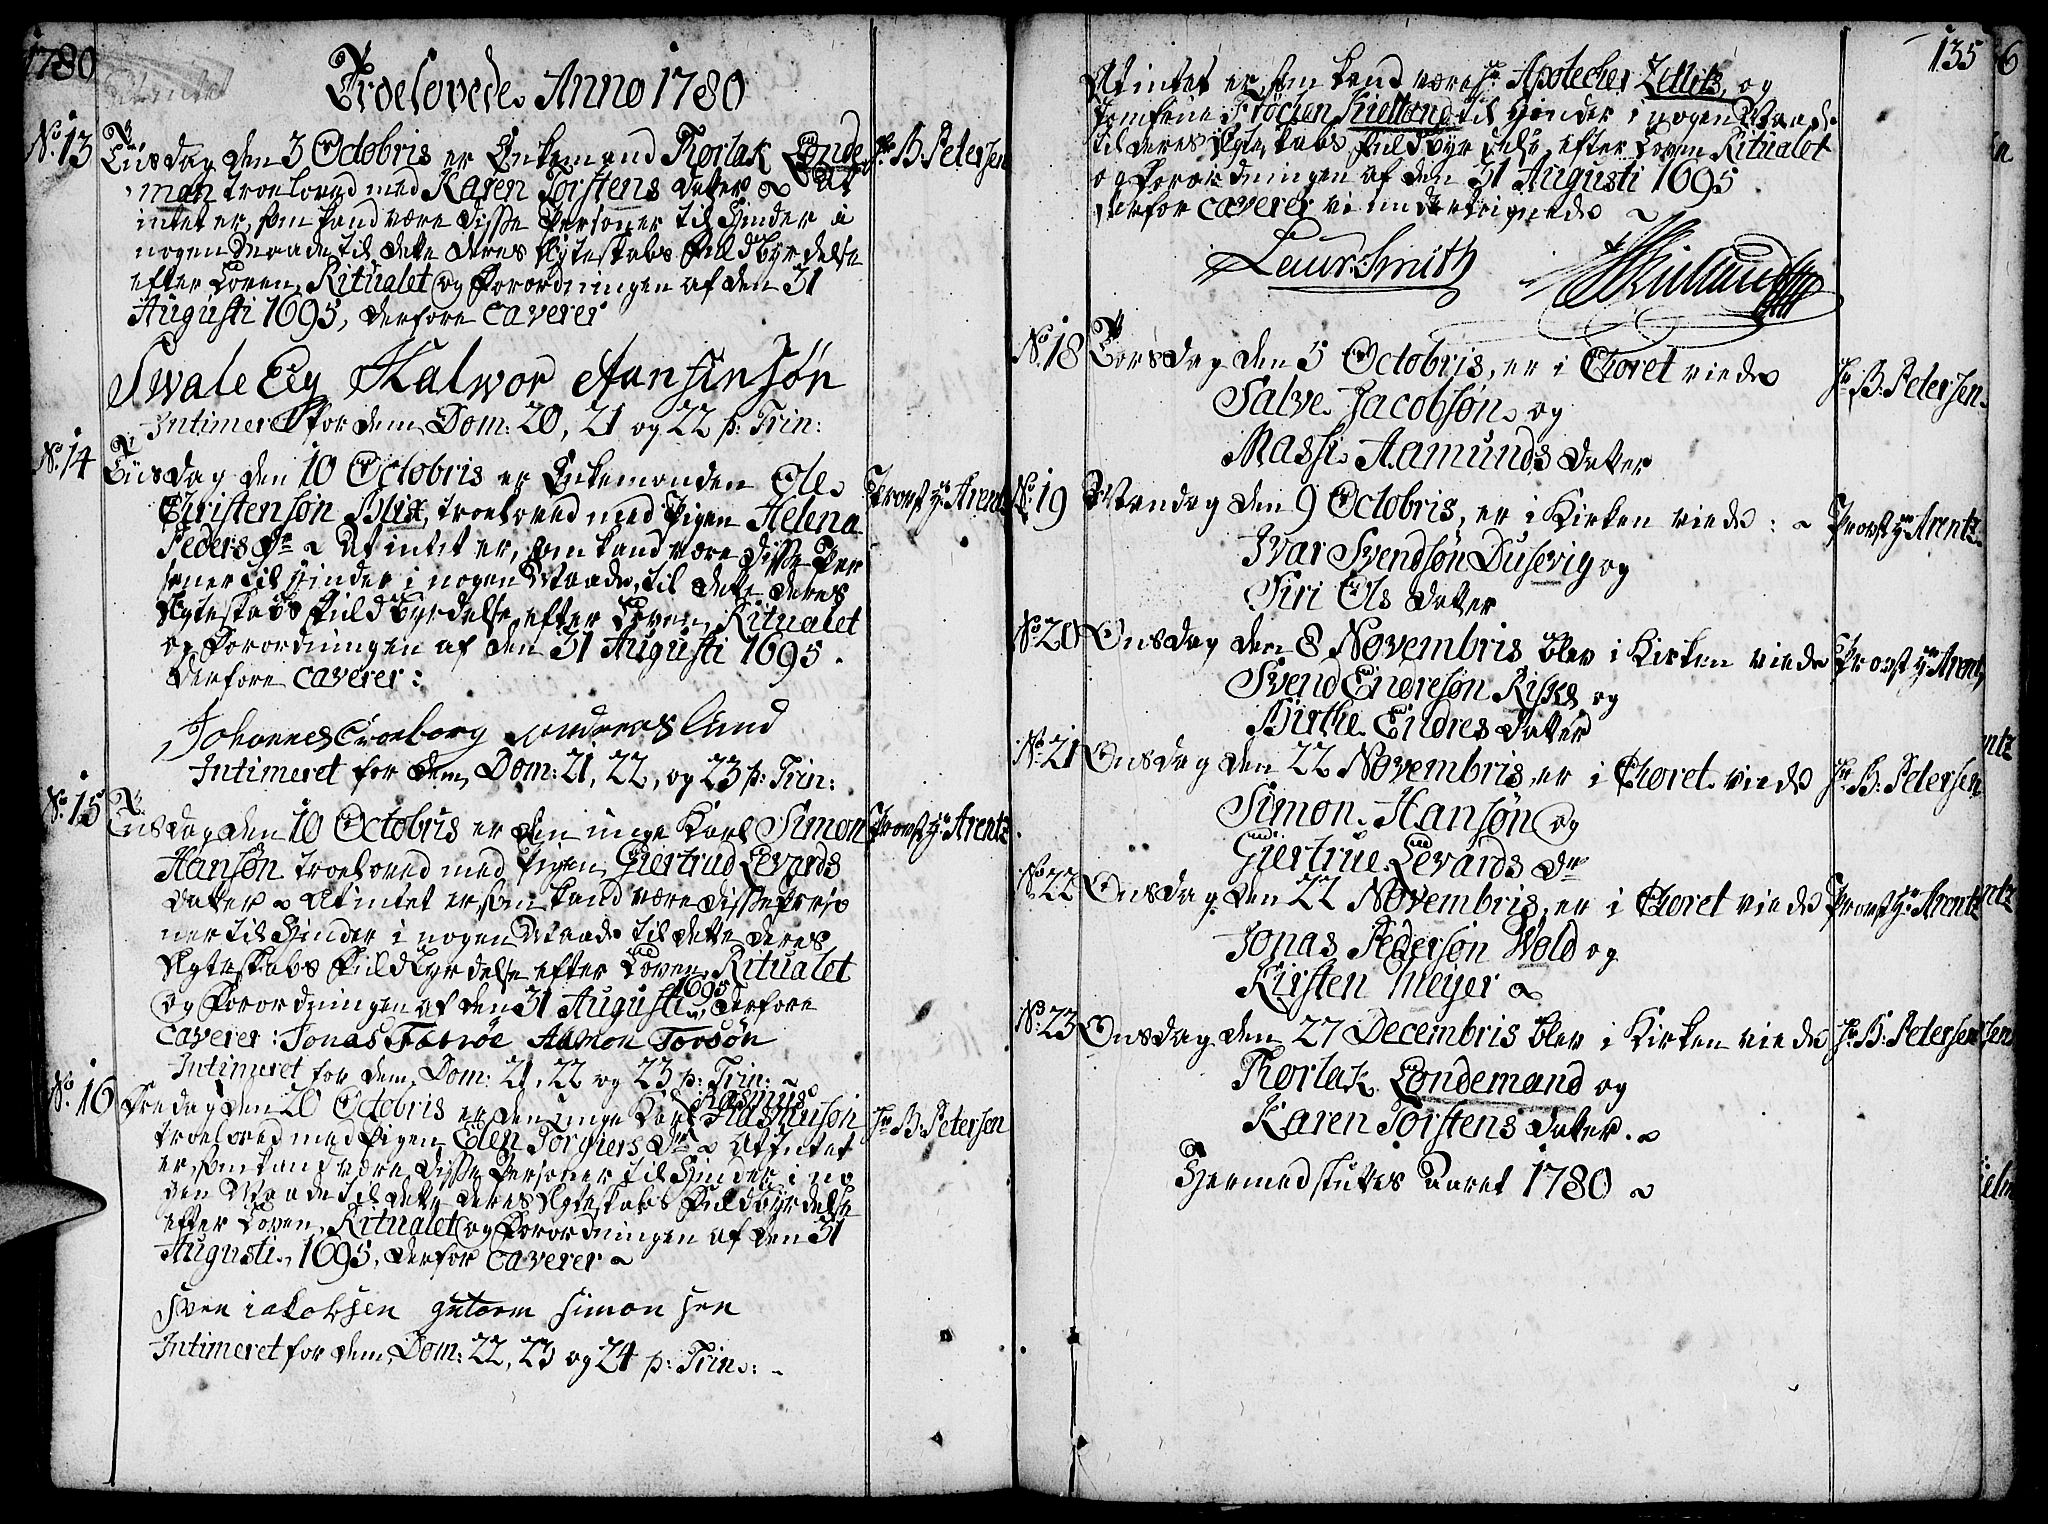 1780
Troelovede Anno 1780
No. 13
Tiisdag den 3 Octobris er Enkemand Thorlak Londe
Hr. B. Petersen
man troeloved med Karen Torstens Datter ~ At
intet er, som kand være disse Personer til Hinder i
nogen Maade til dette deres Ægteskabs Fuldbyrdelse
efter Loven, Ritualet og Forordningen af den 31
Augusti 1695, derfore caverer
Swale Eeg Halwor Aansensøn
Intimeret for dem Dom: 20, 21 og 22 p: Trin:
No. 14
Tiisdag den 10 Octobris er Enkemanden Ole
Provst Hr. Arentz
Christensøn Blix, troeloved med Pigen Helena
Peders Dr ~ At intet er, som kand være disse Per
soner til Hinder i nogen Maade, til dette deres
Ægteskabs Fuldbyrdelse efter Loven, Ritualet
og Forordningen af den 31 Augusti 1695.
derfore caverer:
Johannes Croeborg Andreas Lund
Intimeret for dem, Dom: 21, 22, og 23 p: Trin:
No. 15
Tiisdag den 10 Octobris er den unge Karl Simon
Provst Hr. Arentz
Hansøn troeloved med Pigen Giertrud Levards
Datter ~ At intet er som kand være disse Perso
ner til Hinder i nogen Maade til dette deres
Ægteskabs Fuldbyrdelse efter Loven, Ritualet
og Forordningen af den 31 Augusti 1695, derfore
caverer: Jonas Aamon Torsøn
Intimeret for dem, Dom: 21, 22 og 23 p: Trin: ~
No. 16
Fredag den 20 Octobris er den unge Karl Rasmus Rasmusøn
Hr. B. Petersen
troeloved med Pigen Elen Torgiers Dr ~ At intet
er, som kand være disse Personer til Hinder i no
gen Maade til dette deres Ægteskabs Fuldbyrdelse
efter Loven, Ritualet og Forordningen af den 31
Augusti 1695, derfor caverer ~
Sven iakobsen gutorm simon sen
Intimeret for dem, Dom: 22, 23 og 24 p: Trin: ~
135
At intet er, som kand være Hr. Apotecher Zellitz, og
Jomfrue Frochen Kielland til Hinder i nogen Maade
til deres Ægteskabs Fuldbyrdelse, efter Loven Ritualet
og Forordningen af den 31 Augusti 1695
derfor caverer vi underskrevne ~
Laur. Smith Kielland
No. 18
Torsdag den 5 Octobris, er i Choret viede
Hr. B. Petersen.
Salve Jacobsøn og
Massi Aamunds Datter
No. 19
Mandag den 9 Octobris, er i Kirken viede: ~
Provst Hr. Arentz.
Ivar Svendsøn Dusevig og
Siri Ols Datter
No. 20
Onsdag den 8 Novembris blev i Kirken viede
Provst Hr. Arentz
Svend Endresøn Riske og
Birthe Endres Datter
No. 21
Onsdag den 22 Novembris, er i Choret viede
Hr. B. Petersen
Simon Hansøn og
Giertrue Levards Dr
No. 22
Onsdag den 22 Novembris, er i Choret viede
Provst Hr. Arentz
Jonas Pedersøn Wold og
Kirsten Meyer ~
No. 23
Onsdag den 27 Decembris blev i Kirken viede
Hr. B. Petersen
Thorlak Londemand og
Karen Torstens Datter. ~
Hermed sluttes Aaret 1780 ~